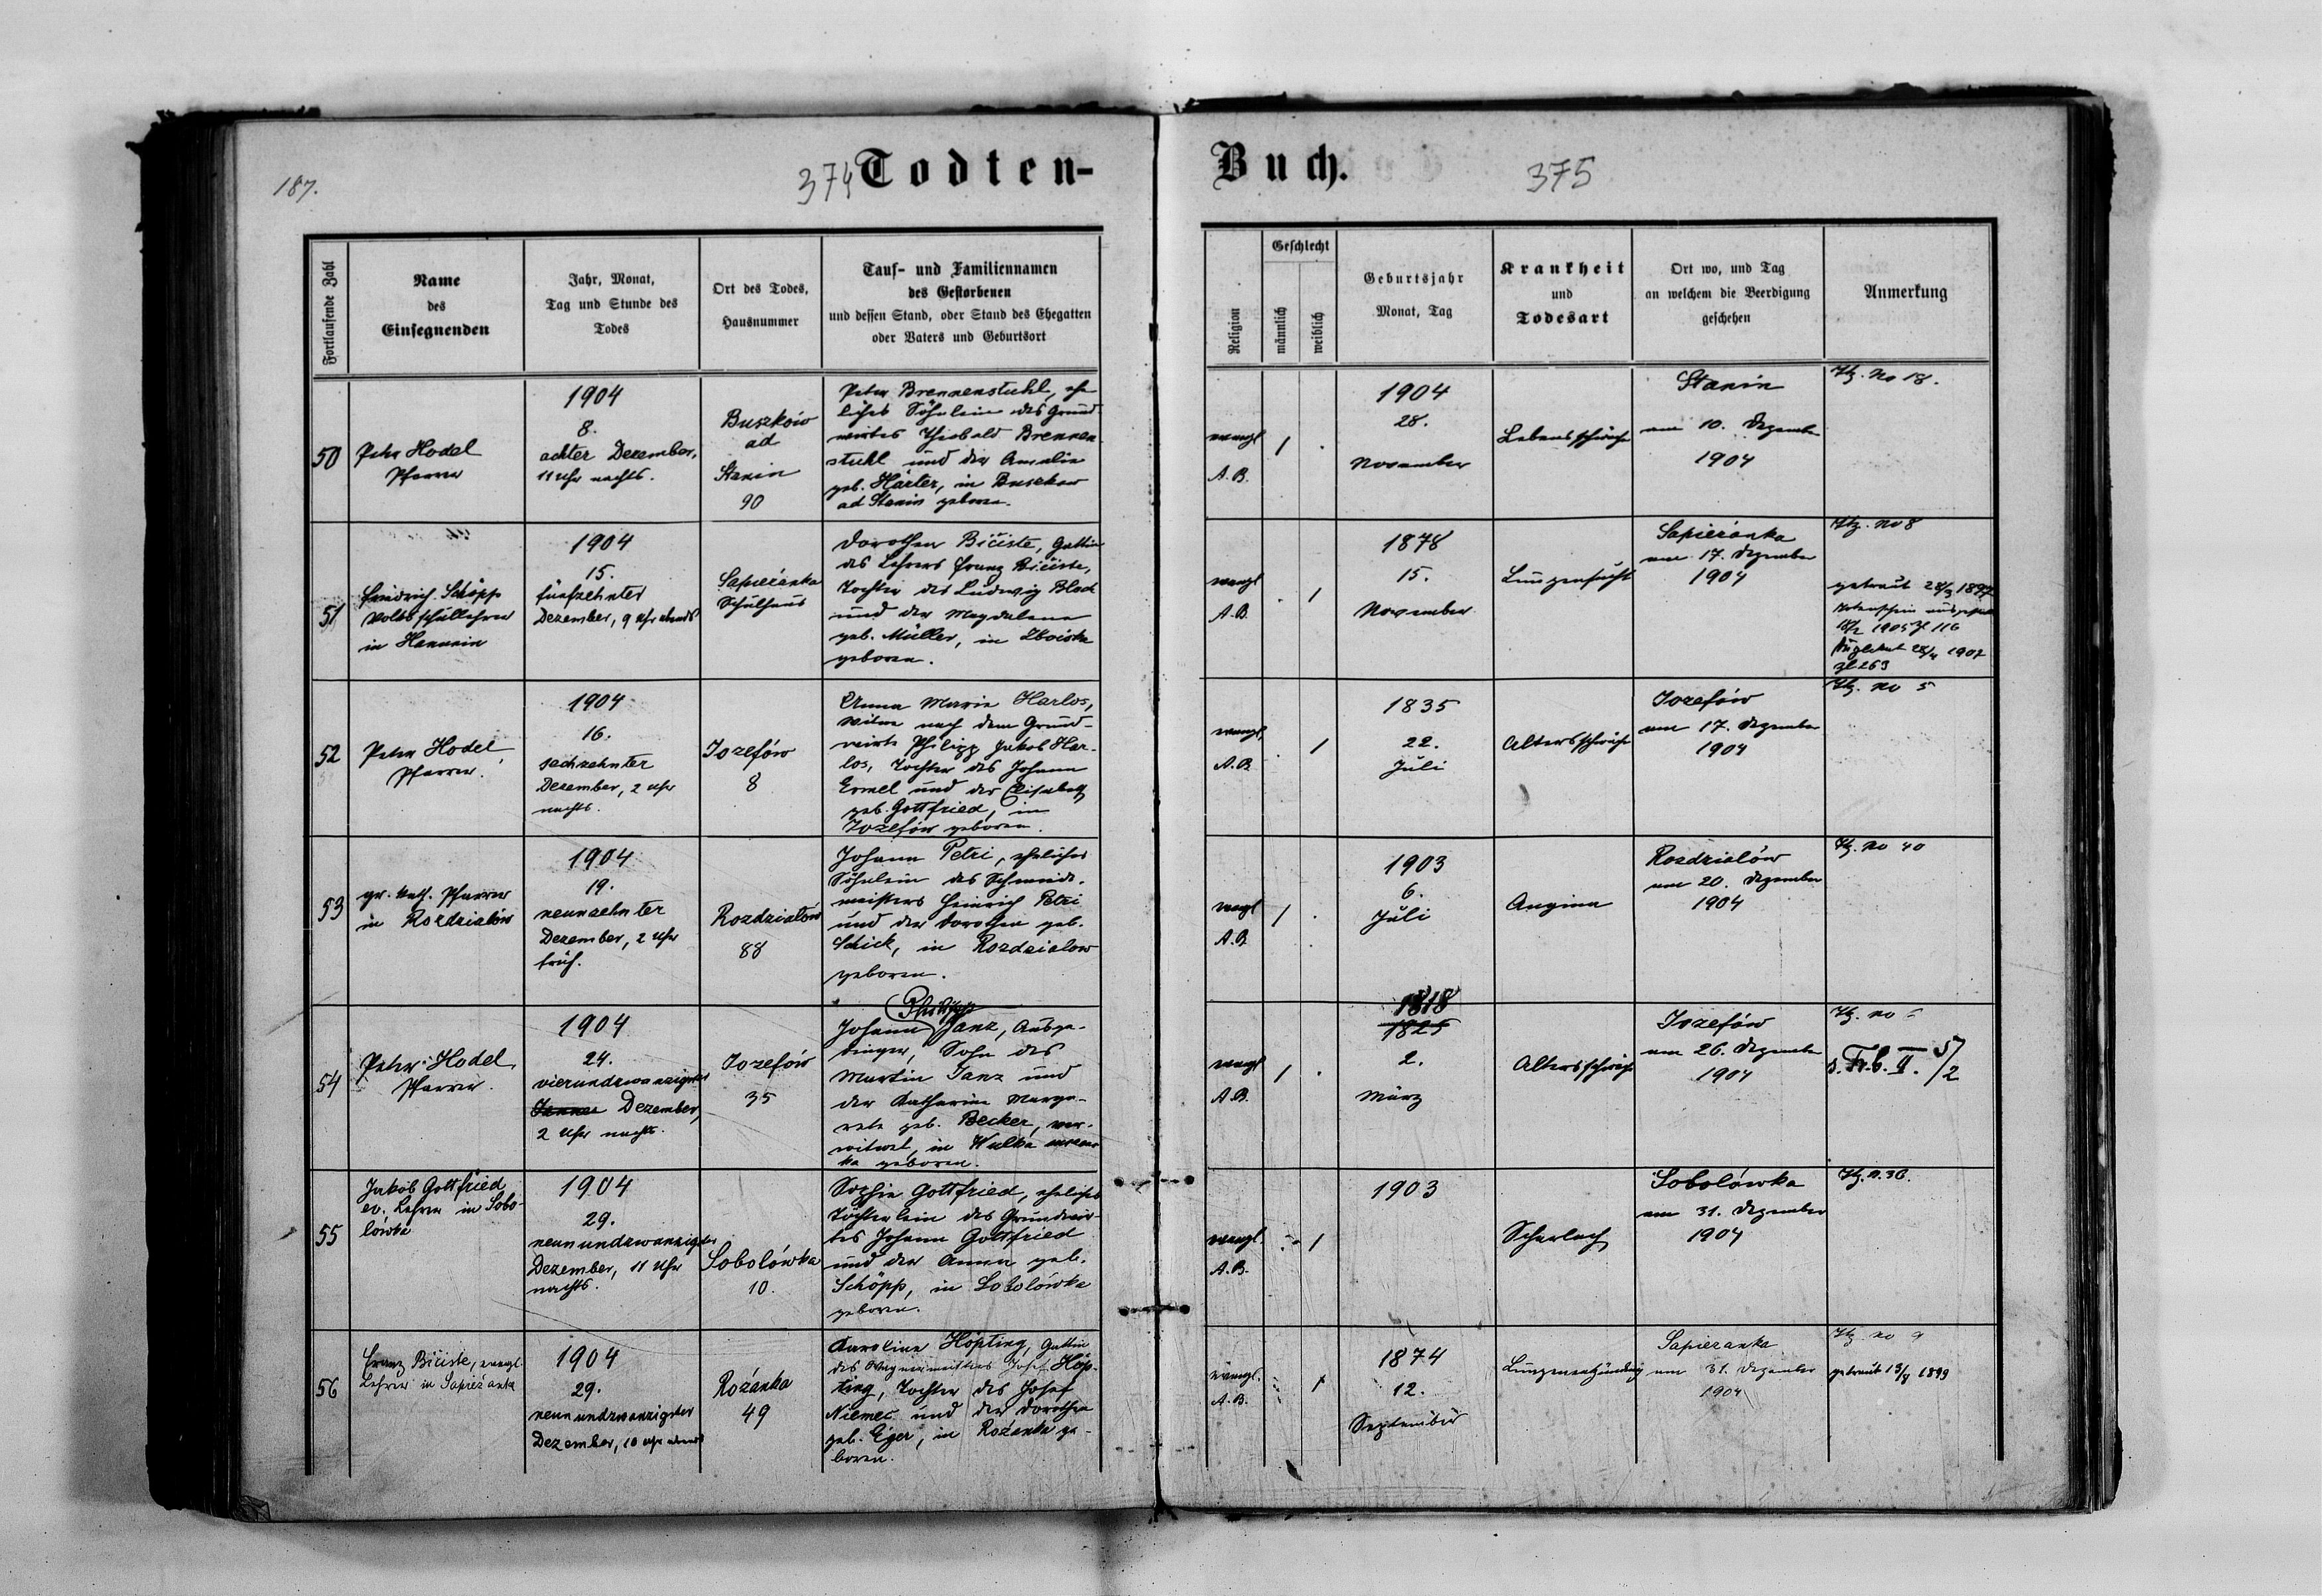 187.
374 Todten-
Buch. 375
Fortlaufende Zahl
Name
des
Einsegnenden
Jahr, Monat,
Tag und Stunde des
Todes
Ort des Todes,
Hausnummer
Tauf- und Familiennamen
des Gestorbenen
und dessen Stand, oder Stand des Ehegatten
oder Vaters und Geburtsort
Religion
Geschlecht
männlich
weiblich
Geburtsjahr
Monat, Tag
Krankheit
und
Todesart
Ort wo, und Tag
an welchem die Beerdigung
geschehen
Anmerkung
50
Peter Hodel
Pfarrer
1904
8.
achter Dezember,
11 Uhr nachts.
Buszków
ad
Stanin
90
Peter Brennenstuhl, ehe
liches Söhnlein des Grund
wirtes Theobald Brennen
stuhl und der Amalie
geb. Härter, in Buszkow
ad Stanin geboren.
evangl
A. B.
1 .
1904
28.
November
Lebensschwäche
Stanin
am 10. Dezember
1904
No 18.
51
Friedrich Schöpp
Volksschullehrer
in Hanunin
1904
15.
fünfzehnter
Dezember, 9 Uhr abends
Sapieżanka
Schulhaus
Dorothea Bičiste, Gattin
des Lehrers Franz Bičiste,
Tochter des Ludwig Bloch
und der Magdalena
geb. Müller, in Zboiska
geboren.
evangl
A. B.
. 1
1878
15.
November
Lungensucht
Sapieżanka
am 17. Dezember
1904
No 8
getraut 28/3 1897
Totenschein ausgestellt
18/2 1905 Zl 116
28/4 1907
Zl 263
52
Peter Hodel,
Pfarrer.
1904
16.
sechzehnter
Dezember, 2 Uhr
nachts.
Jozefów
8
Anna Maria Harlos,
Witwe nach dem Grund-
wirte Philipp Jakob Har-
los, Tochter des Johann
Ermel und der Elisabeth
geb. Gottfried, in
Jozefów geboren.
evangl.
A. B.
. 1
1835
22.
Juli
Altersschwäche
Jozefów
am 17. Dezember
1904
No 5
53
gr. kath. Pfarrer
in Rozdziałów
1904
19.
neunzehnter
Dezember, 2 Uhr
früh.
Rozdziałów
88
Johann Petri, eheliches
Söhnlein des Schmiede-
meisters Heinrich Petri
und der Dorothea geb.
Schick, in Rozdzialow
geboren.
evangl
A. B.
1 .
1903
6.
Juli
Angina
Rozdzialów
am 20. Dezember
1904
No 40
54
Peter Hodel,
Pfarrer.
1904
24.
vierundzwanzigster
Jänner Dezember,
2 Uhr nachts.
Jozefów
35
Philipp
Johann Janz, Ausge-
dinger, Sohn des
Martin Janz und
der Katharina Marga-
reta geb. Becker, ver-
witwet, in Wulka
geboren.
evangl
A. B.
1 .
1818
1825
2.
März
Altersschwäche
Jozefów
am 26. Dezember
1904
s. Fr. b. II. 5/2
55
Jakob Gottfried
ev. Lehrer in Sobo-
lówka
1904
29.
neunundzwanzigster
Dezember, 11 Uhr
nachts.
Sobolówka
10.
Sophie Gottfried, eheliches
Töchterlein des Grundwir-
tes Johann Gottfried
und der Anna geb.
Schöpp, in Sobolówka
geboren.
evangl.
A. B.
. 1
1903
Scharlach
Sobolówka
am 31. Dezember
1904
56
Franz Bičiste, evangl.
Lehrer in Sapieżanka
1904
29.
neunundzwanzigster
Dezember, 10 Uhr abends
Rożanka
49
Karolina Höpting, Gattin
des Wagnermeisters Josef Höp-
ting, Tochter des Josef
Niemec und der Dorothea
geb. Eger, in Rożanka ge-
boren.
evangl.
A. B.
1
1874
12.
September
Lungenentzündung
Sapieżanka
am 31. Dezember
1904
No 9
getraut 1899